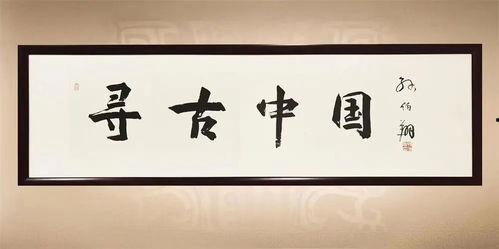 寻古中国
孙伯翔